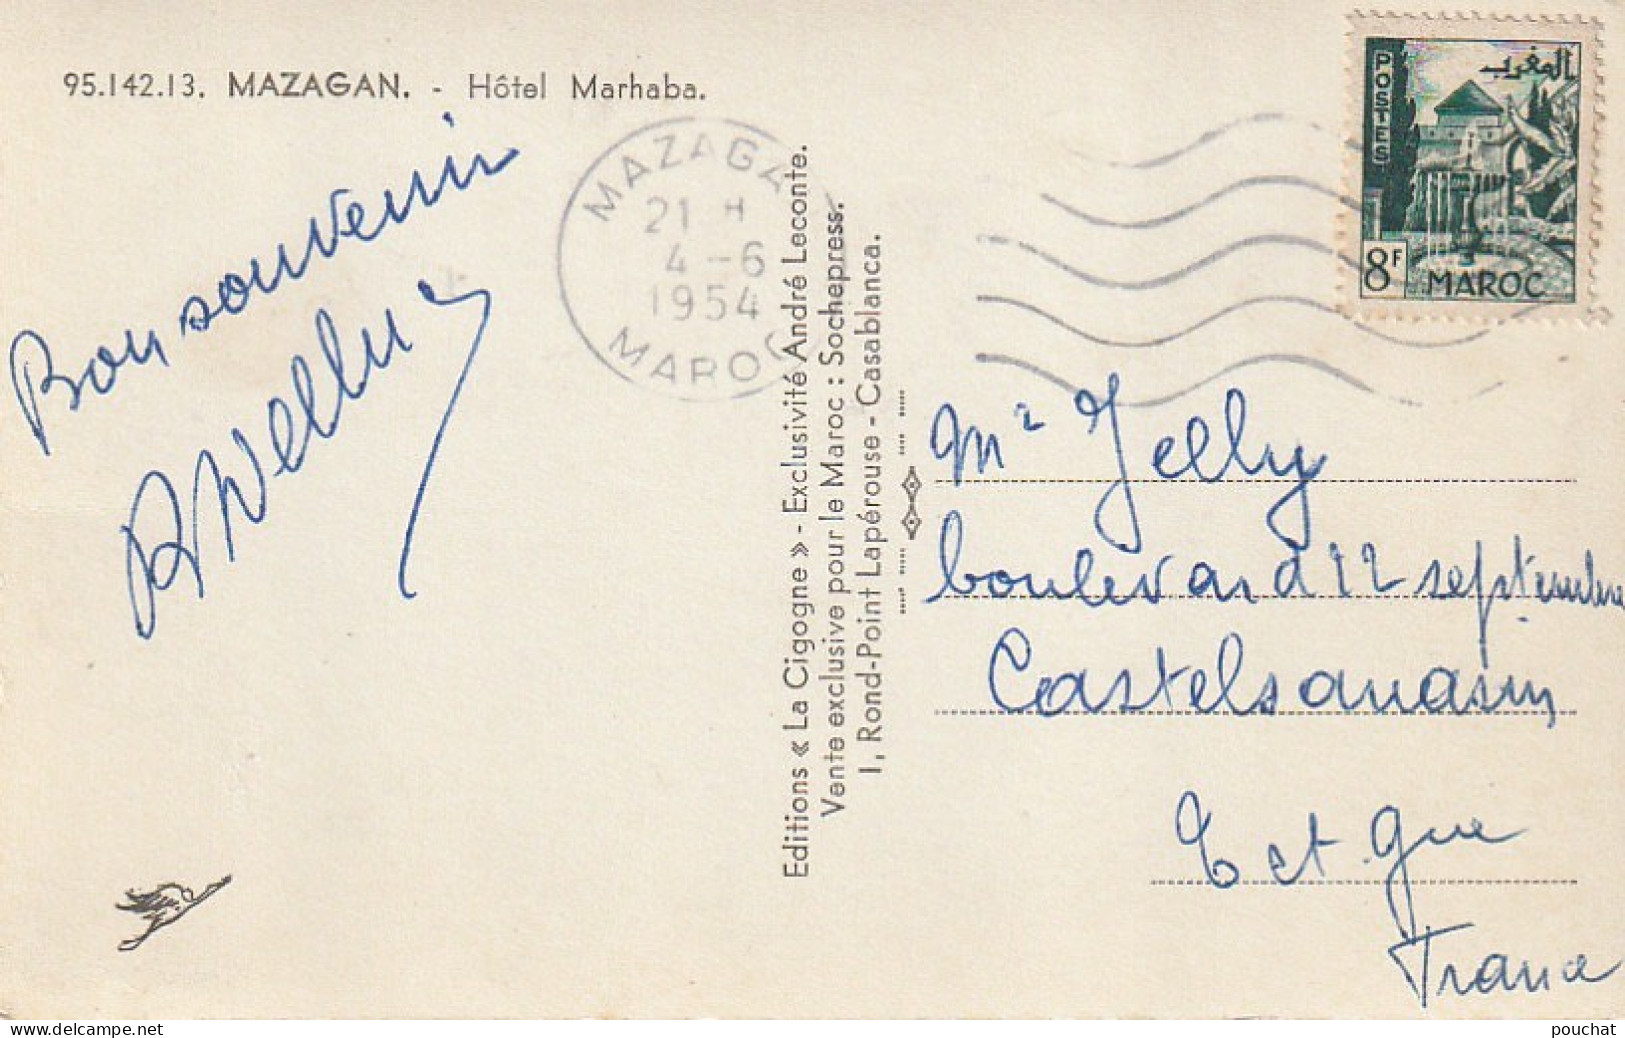 95.142.13. MAZAGAN. - Hôtel Marhaba.
Bon souvenir
MAZAGA
21 H
4-6
1954
MAROC
Editions « La Cigogne » - Exclusivité André Leconte.
Vente exclusive pour le Maroc : Sochepress.
1, Rond-Point Lapérouse - Casablanca.
POSTES
المغرب
8F
MAROC
Mr Jelly
boulevard 12 septembre
Castelsarrasin
T et Gne
France
delcampe.net
pouchat